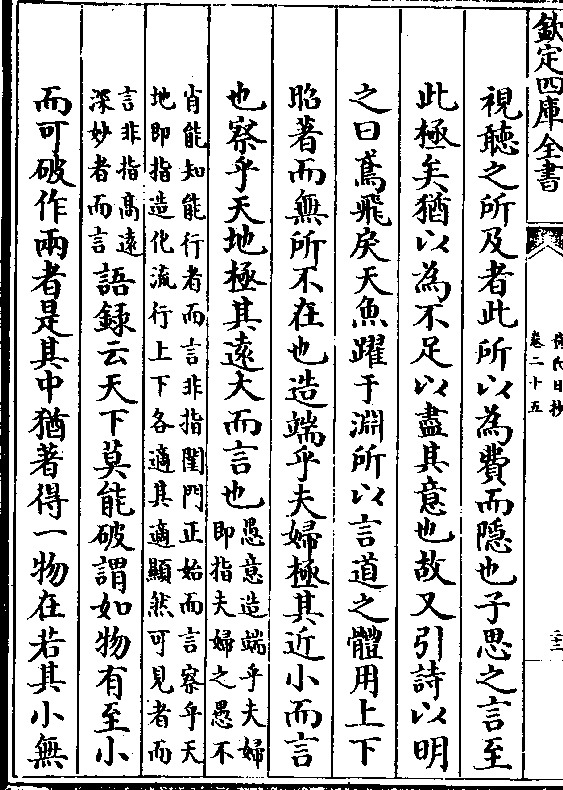 欽定四庫全書
黃氏日抄
卷二十五
視聽之所及者此所以為費而隱也子思之言至
此極矣猶以為不足以盡其意也故又引詩以明
之曰鳶飛戾天魚躍于淵所以言道之體用上下
昭著而無所不在也造端乎夫婦極其近小而言
也察乎天地極其遠大而言也
愚意造端乎夫婦
即指夫婦之愚不
肖能知能行者而言非指閨門正始而言察乎天
地即指造化流行上下各適其適顯然可見者而
言非指高遠
深妙者而言
語録云天下莫能破謂如物有至小
而可破作兩者是其中猶著得一物在若其小無